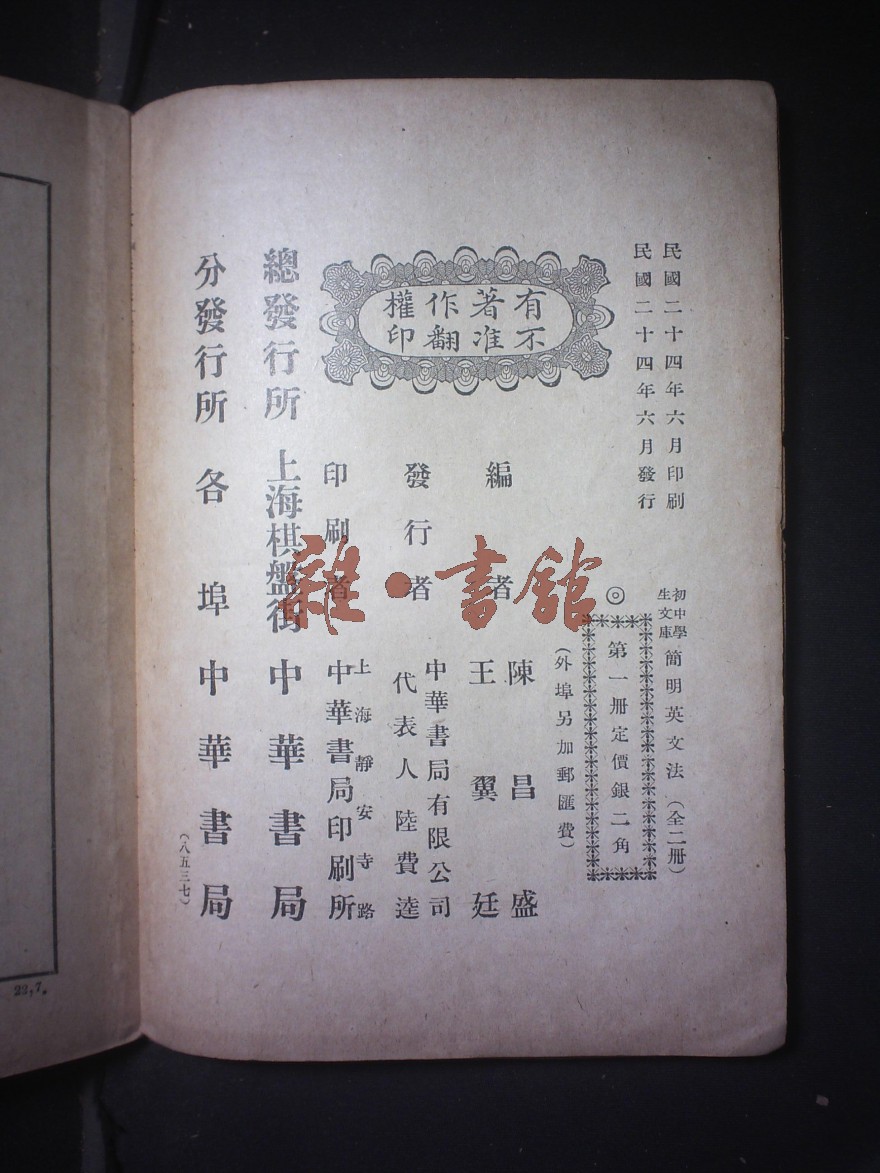 民國二十四年六月印刷
民國二十四年六月發行
初中學
生文庫
簡明英文法(全二冊)
◎
第一冊定價銀二角
(外埠另加郵匯費)
有著作權
不准翻印
編者
陳昌盛
王翼廷
發行者
中華書局有限公司
代表人陸費逵
印刷者
上海靜安寺路
中華書局印刷所
總發行所 上海棋盤街 中華書局
分發行所 各埠 中華書局
(八五三七)
雜·書館
23,7。